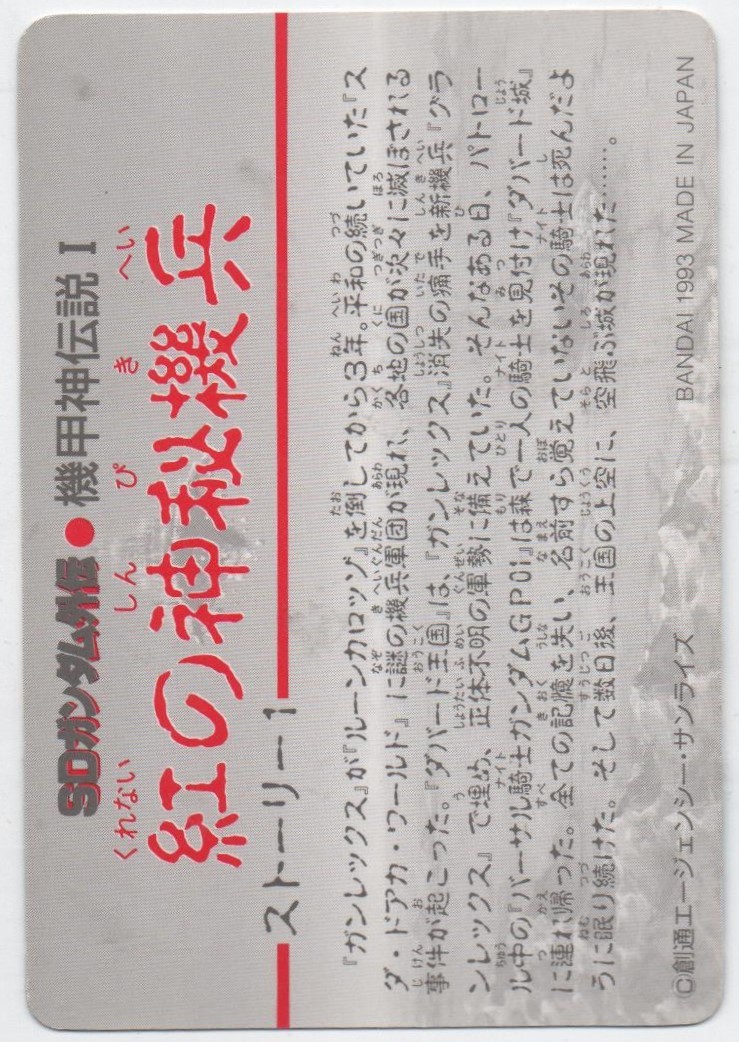 SDガンダム外伝●機甲神伝説Ⅰ
くれない しん ぴ き へい
紅の神秘機兵
ストーリー1
『ガンレックス』が『ルーンカロッゾ』を倒してから3年。平和の続いていた『ス
ダ・ドアカ・ワールド』に謎の機兵軍団が現れ、各地の国が次々に滅ぼされる
事件が起こった。『ダバード王国』は、『ガンレックス』消失の痛手を新機兵『グラ
ンレックス』で埋め、正体不明の軍勢に備えていた。そんなある日、パトロー
ル中の『バーサル騎士ガンダムGP01』は森で一人の騎士を見付け『ダバード城』
に連れ帰った。全ての記憶を失い、名前すら覚えていないその騎士は死んだよ
うに眠り続けた。そして数日後、王国の上空に、空飛ぶ城が現れた……。
©創通エージェンシー・サンライズ
BANDAI 1993 MADE IN JAPAN